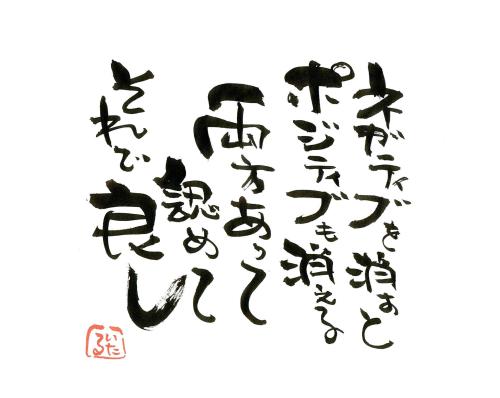 ネガティブを消すと
ポジティブも消える
両方あって
認めて
それで
良し
いたる